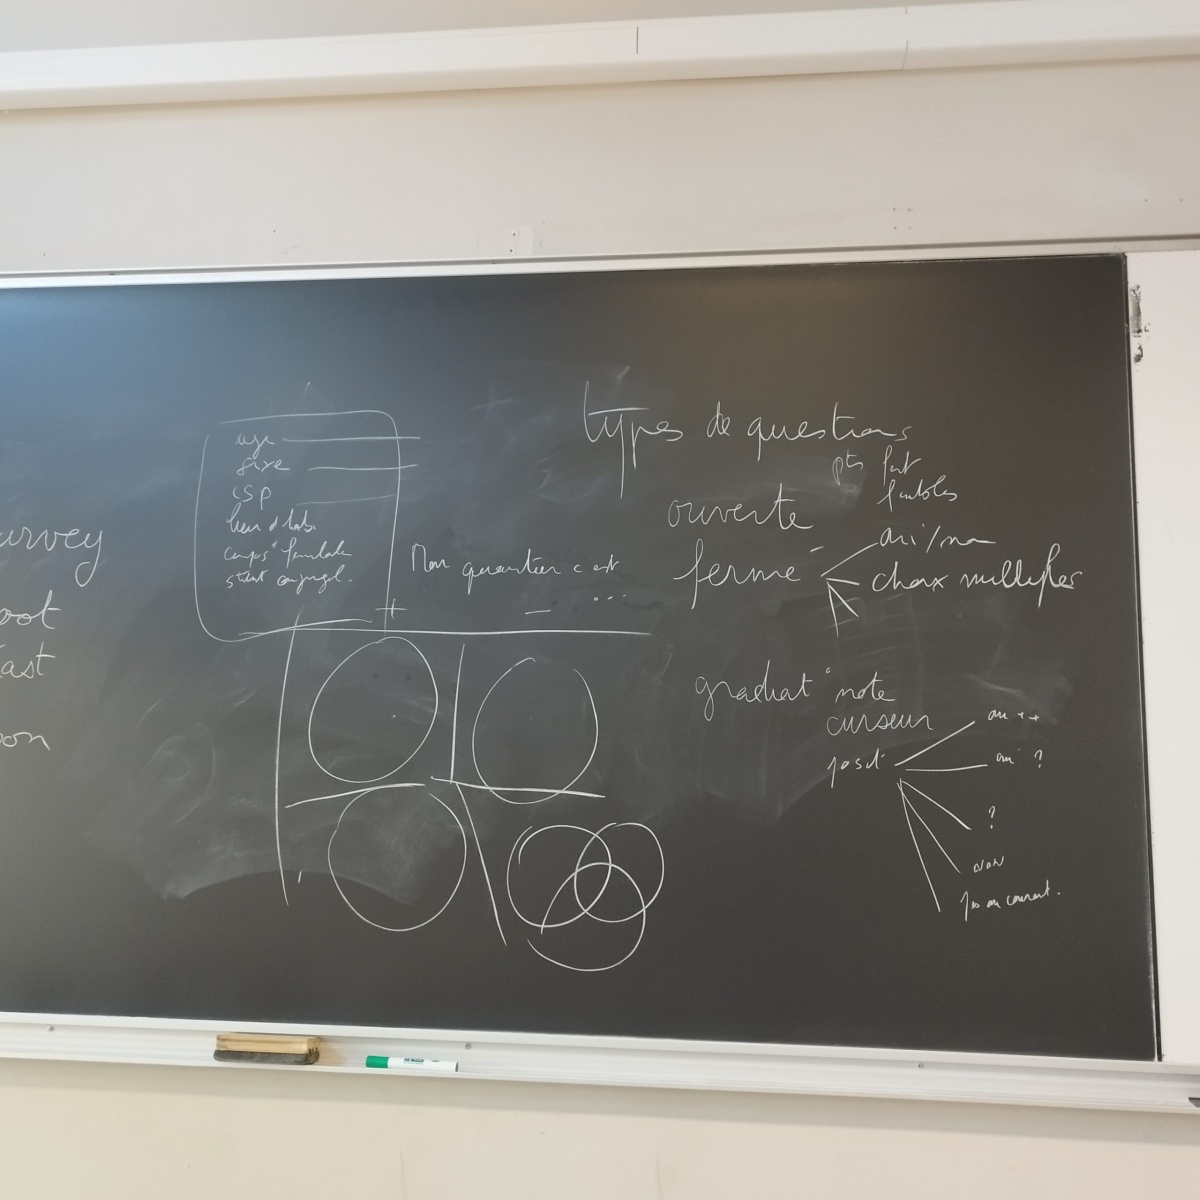 urvey
oot
ast
oon
age
sexe
CSP
lieu d'hab.
compo° familiale
statut conjugal.
Mon quartier c'est
+ - ...
types de questions
pts fort
faibles
ouverte
fermé
oui/non
choix multiples
graduat° note
curseur
posit
oui ++
oui ?
?
non
pas au courant.